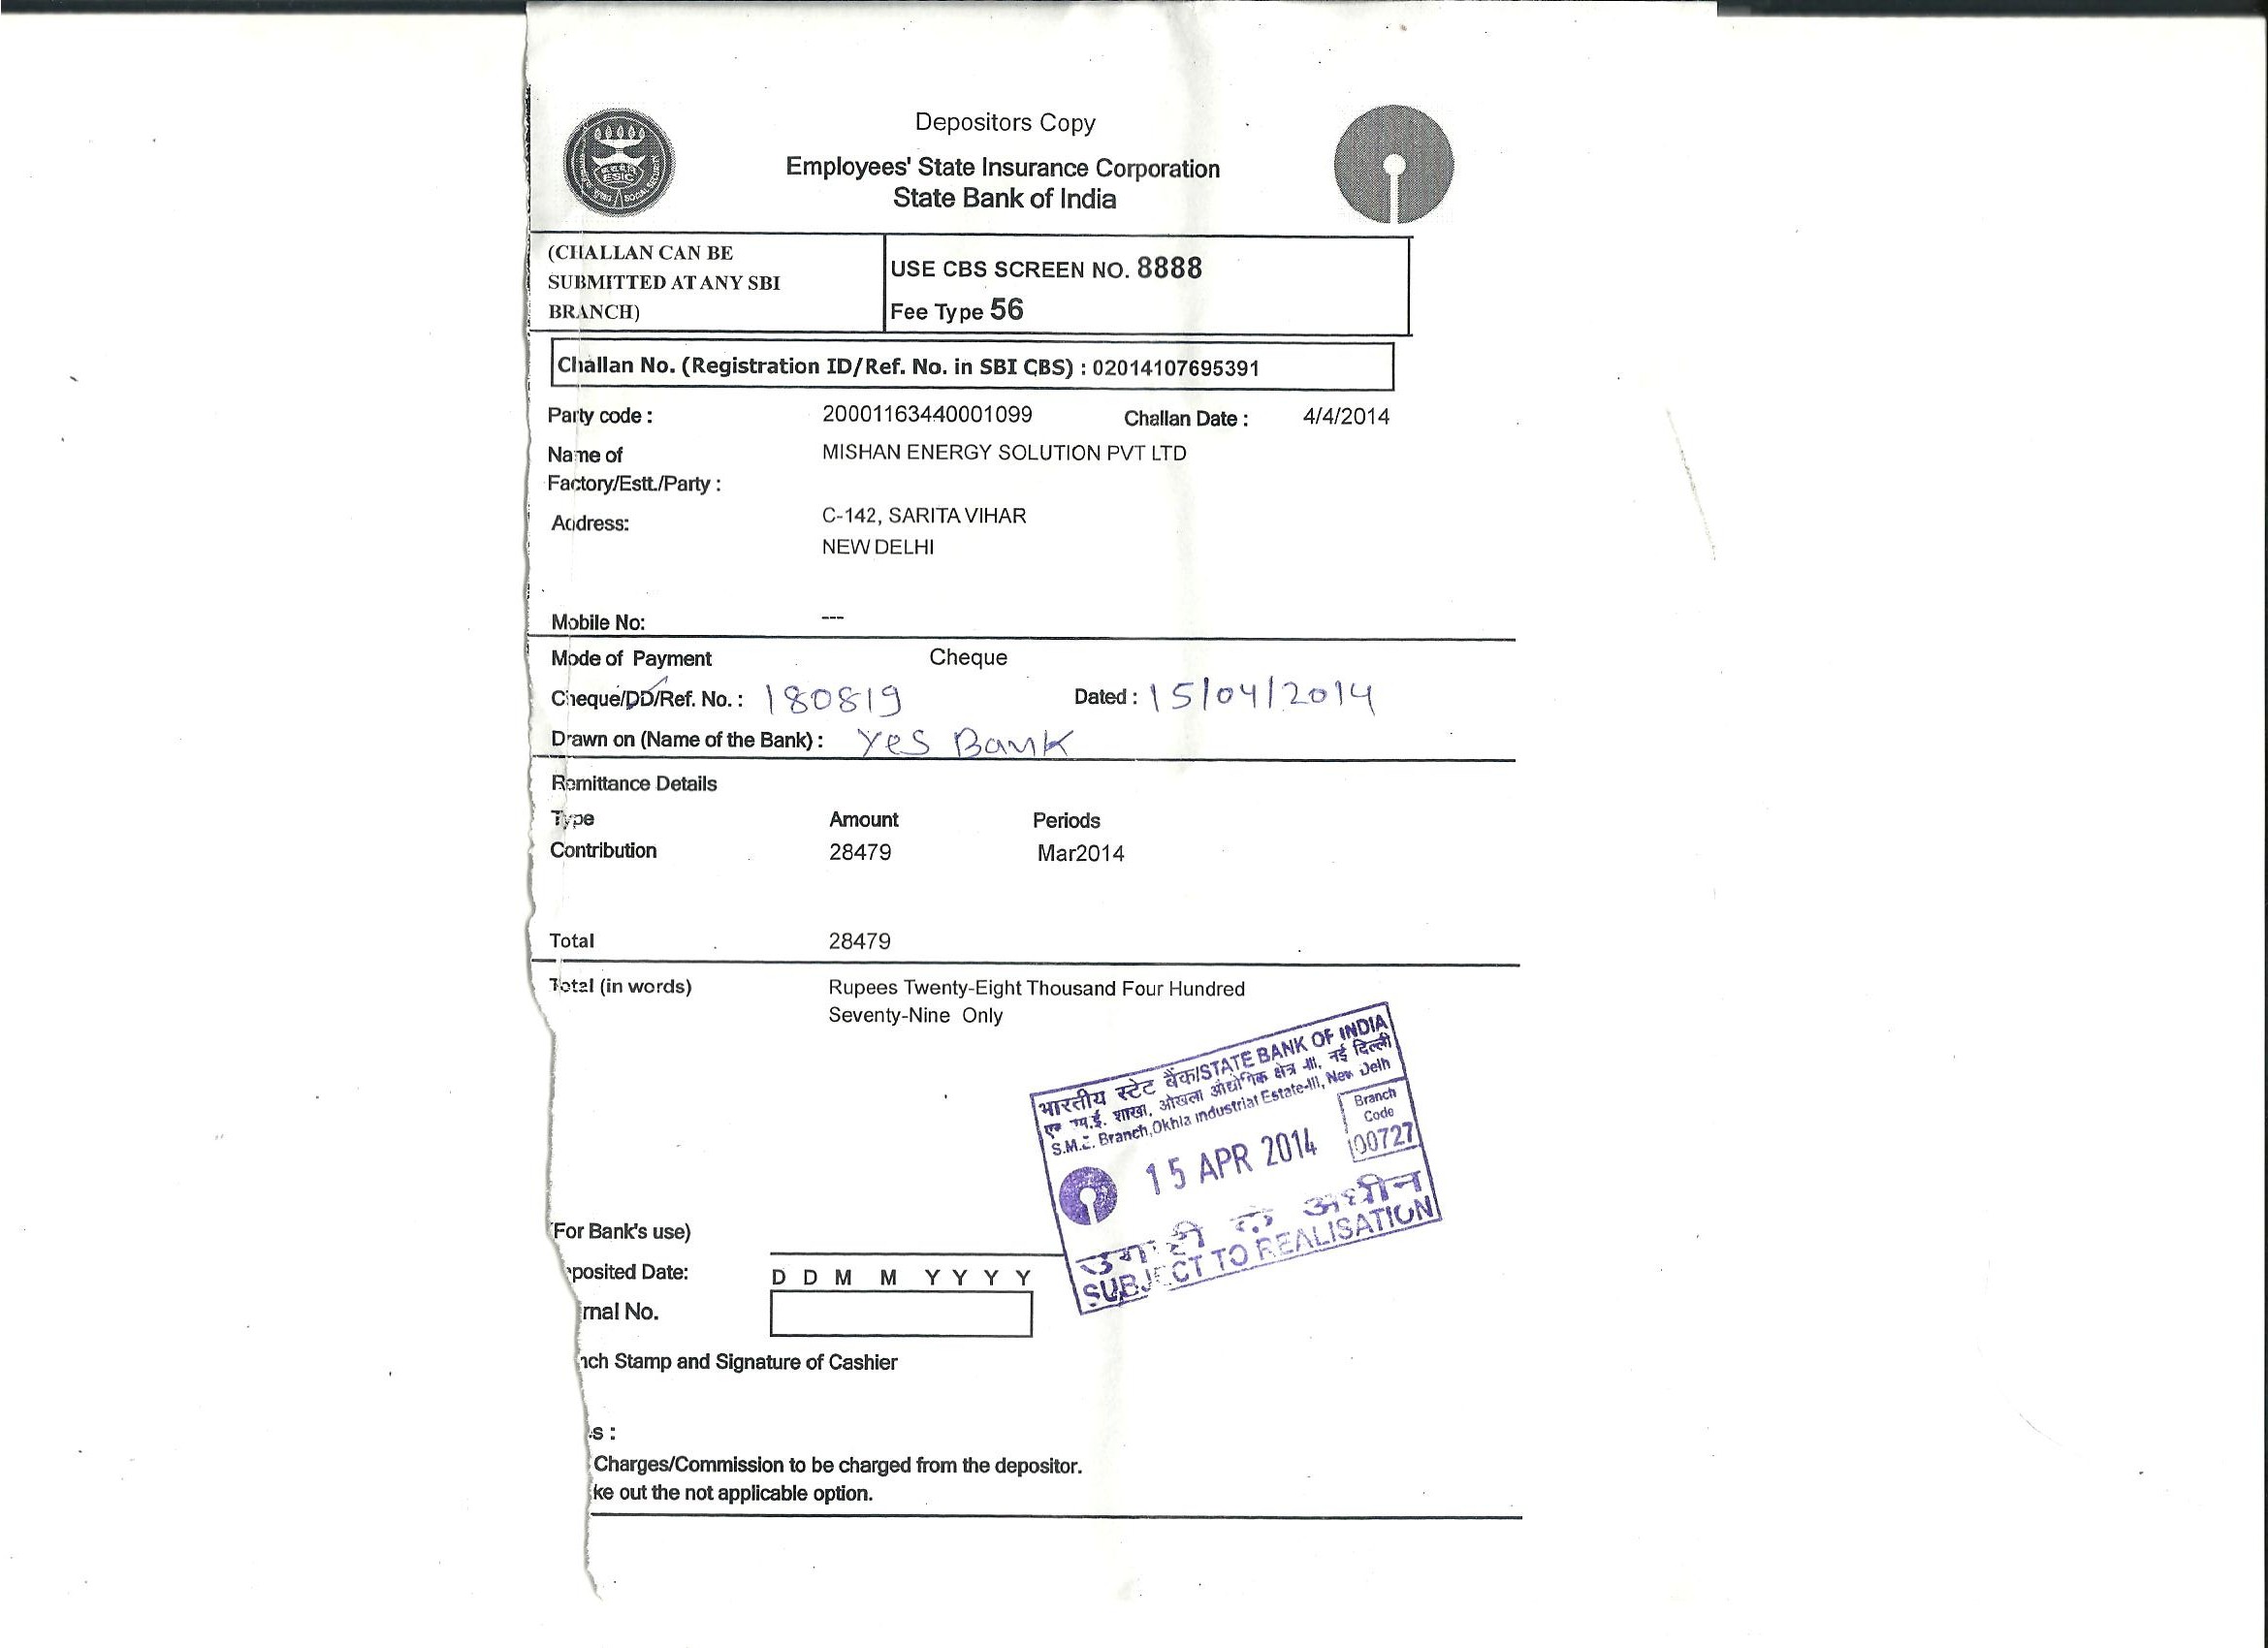 Depositors Copy
Employees' State Insurance Corporation
State Bank of India
ESIC
(CHALLAN CAN BE
SUBMITTED AT ANY SBI
BRANCH)
USE CBS SCREEN NO. 8888
Fee Type 56
Challan No. (Registration ID/Ref. No. in SBI CBS) : 02014107695391
Party code : 20001163440001099 Challan Date : 4/4/2014
Name of MISHAN ENERGY SOLUTION PVT LTD
Factory/Estt./Party :
Address: C-142, SARITA VIHAR
NEW DELHI
Mobile No: ---
Mode of Payment Cheque
Cheque/DD/Ref. No. : 180819 Dated : 15/04/2014
Drawn on (Name of the Bank) : Yes Bank
Remittance Details
Type Amount Periods
Contribution 28479 Mar2014
Total 28479
Total (in words) Rupees Twenty-Eight Thousand Four Hundred
Seventy-Nine Only
भारतीय स्टेट बैंक/STATE BANK OF INDIA
शाखा, ओखला औद्योगिक क्षेत्र -III, नई दिल्ली
S.M.E. Branch, Okhla Industrial Estate-III, New Delh
Branch
Code
00727
15 APR 2014
के अधीन
SUBJECT TO REALISATION
(For Bank's use)
posited Date: D D M M Y Y Y Y
rnal No.
nch Stamp and Signature of Cashier
s :
Charges/Commission to be charged from the depositor.
ke out the not applicable option.